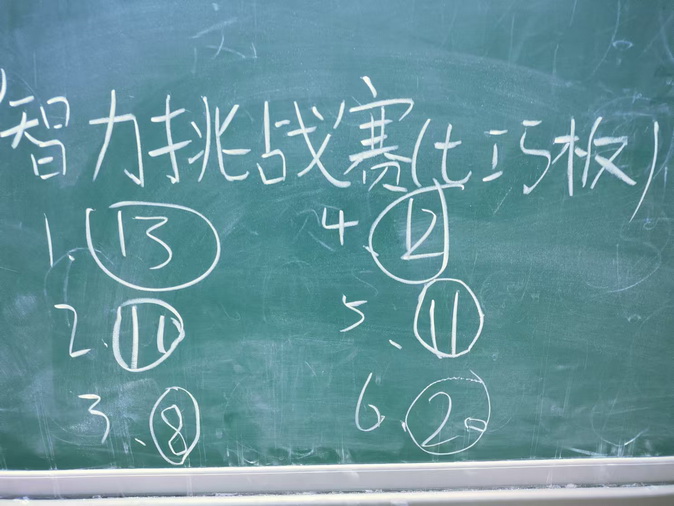 智力挑战赛(七巧板)
1. 13
4. 12
2. 10
5. 11
3. 8
6. 20